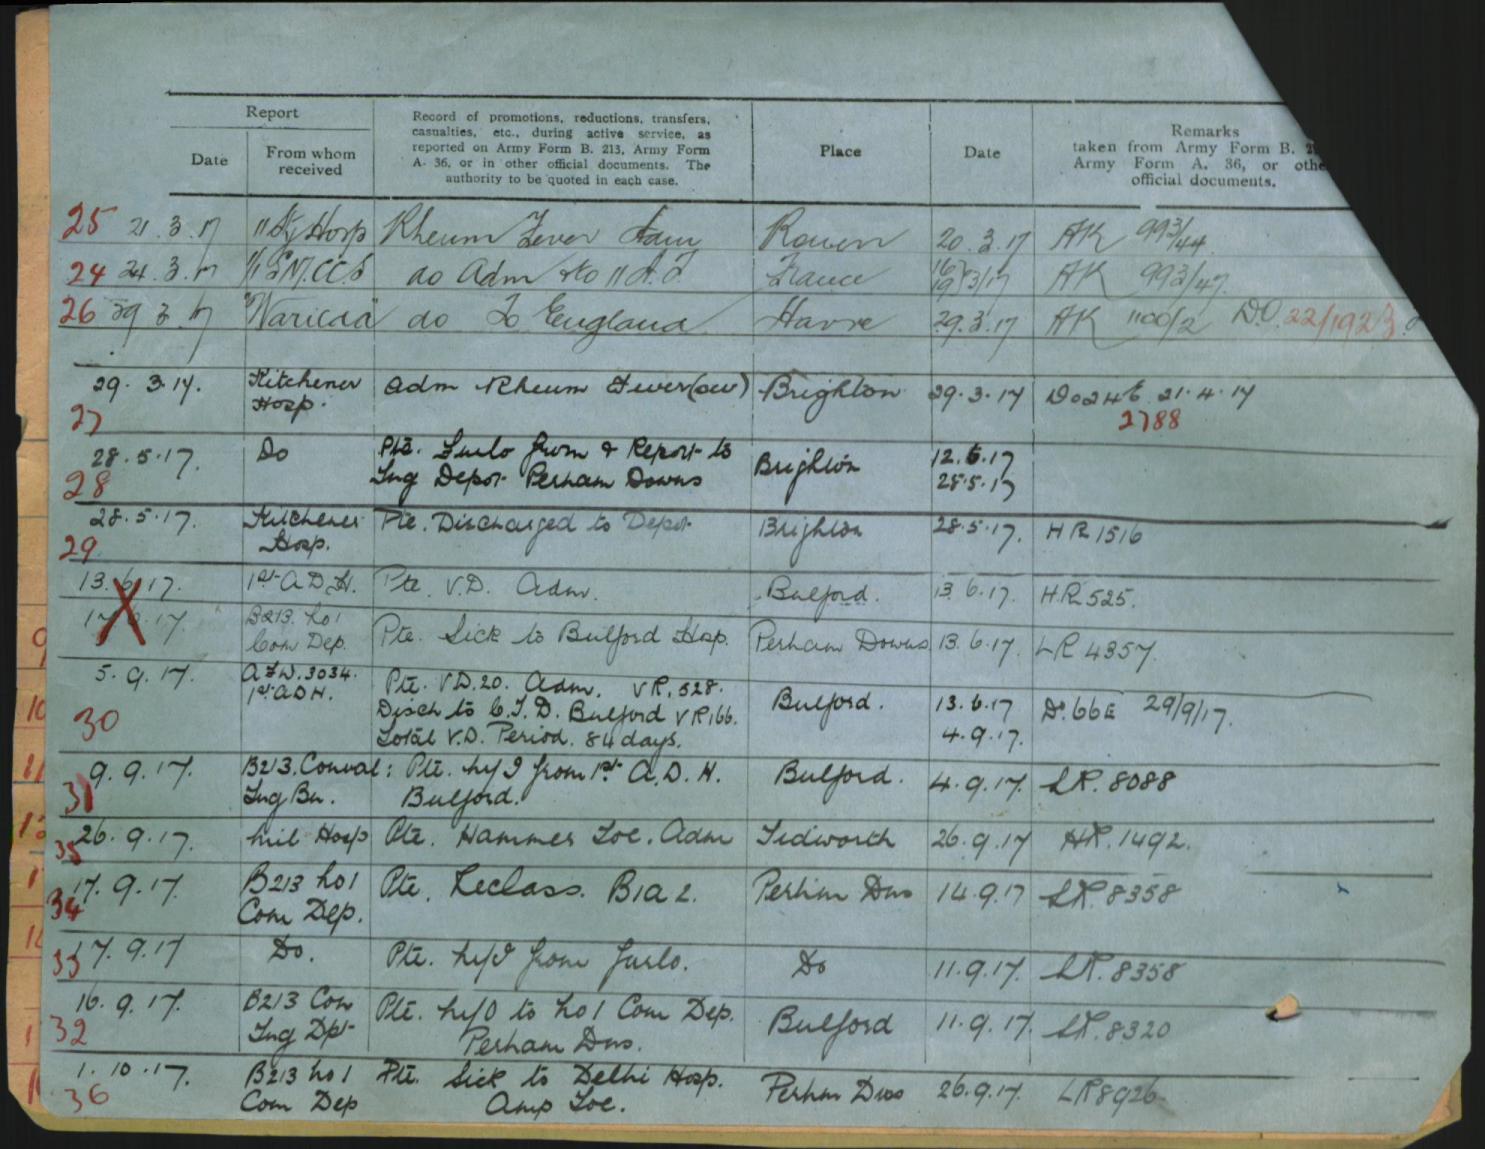 Report
Date
From whom received
Record of promotions, reductions, transfers,
casualties, etc., during active service, as
reported on Army Form B. 213, Army Form
A. 36, or in other official documents. The
authority to be quoted in each case.
Place
Date
Remarks
taken from Army Form B.
Army Form A. 36, or othe
official documents.
25 21.3.17 11 Sty Hosp Rheum Fever Adm Rouen 20.3.17 AK 993/44
24 24.3.17 do Adm to 11 A.T. France 3/17 AK 993/47
26 29 3 17 "Warilda" do To England Havre 29.3.17 AK 1100/2 D.O. 22/1923
27 29.3.17. Kitchener Hosp. Adm Rheum Fever (sev) Brighton 29.3.17 Do 24 E 21.4.17
2788
28 28.5.17. Do Pte. Furlo from & Report to Brighton 12.5.17
Tng Depot Perham Downs 28.5.17
29 28.5.17. Kitchener Hosp. Pte. Discharged to Depot Brighton 28.5.17. HR 1516
13.6.17. 1st A.D.H. Pte V.D. Adm. Bulford. 13.6.17. H.R. 525.
X 17.6.17 B213. No 1 Com Dep. Pte. Sick to Bulford Hosp. Perham Downs 13.6.17. LR 4357
30 5.9.17. A.F.W. 3034. 1st A D H. Pte. V.D. 20. Adm. VR. 528. Bulford. 13.6.17 Do. 66E 29/9/17.
Disch to C.T.D. Bulford VR 166. 4.9.17.
Total V.D. Period. 84 days.
31 9.9.17. B213. Conval: Tng Bn. Pte. M/I from 1st A.D.H. Bulford. Bulford. 4.9.17. LR. 8088
35 26.9.17. Mil Hosp Pte. Hammer Toe. Adm Tidworth 26.9.17 HR. 1492.
34 17.9.17. B213 No 1 Com Dep. Pte. Reclass. B1A2. Perham Dns 14.9.17 LR. 8358
33 17.9.17 Do. Pte. M/I from Furlo. Do 11.9.17. LR. 8358
32 16.9.17. B213 Con Tng Dpt Pte. M/O to No 1 Com Dep. Perham Dns. Bulford 11.9.17. LR. 8320
36 1.10.17. B213 No 1 Com Dep Pte. Sick to Delhi Hosp. Amp Toe. Perham Dns 26.9.17. LR 8926